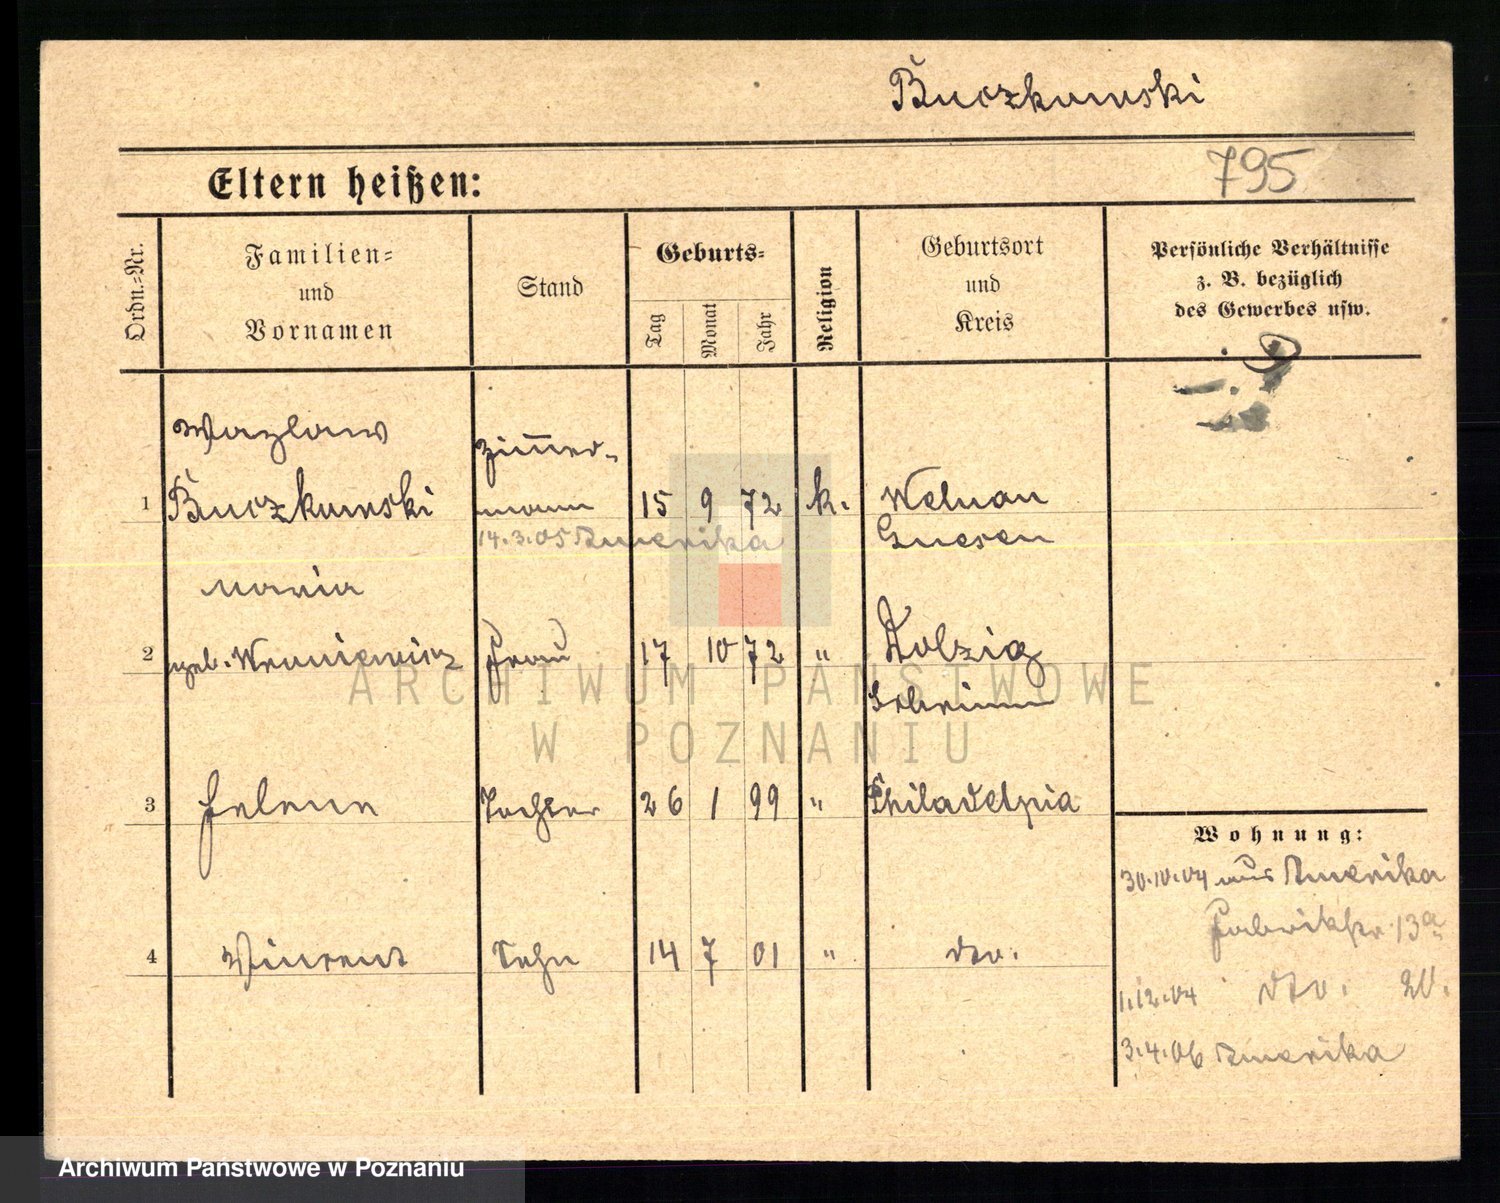 Buczkowski
795
Eltern heißen:
Ordn.=Nr.
Familien=
und
Vornamen
Stand
Geburts=
Tag
Monat
Jahr
Religion
Geburtsort
und
Kreis
Persönliche Verhältnisse
z. B. bezüglich
des Gewerbes usw.
Wazlaw Zimmer-
1 Buczkowski mann 15 9 72 k. Welnau
14.3.05 Amerika Gnesen
Maria
2 geb. Wroniewicz Frau 17 10 72 " Dolzig
Schrimm
3 Helene Tochter 26 1 99 " Philadelpia
Wohnung:
30.10.04 aus Amerika
Fabrikstr. 13a
4 Vincent Sohn 14 7 01 " dto.
1.12.04 dto. 20.
3.4.06 Amerika
ARCHIWUM PAŃSTWOWE
W POZNANIU
Archiwum Państwowe w Poznaniu